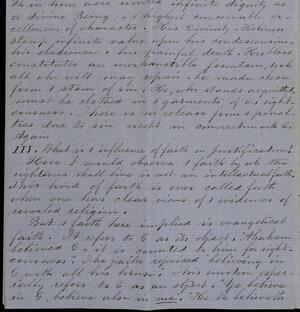 in him were united infinite dignity as
a divine Being, & highest conceivable ex-
cellences of character. His Divinity & Holiness
stamp infinite value upon his condescension,
his obedience & his painful death. His blood
constitutes an inexhaustible fountain, such
all who will may repair & be made clean
from & stain of sin. He, who stands acquitted,
must be clothed in & garments of C's right-
eousness. There is no release from & penal-
ties due to sin except in connection with C.
Again
III. What is & influence of faith in Justification?
Here I would observe & faith by wh the
righteous shall live is not an intellectual faith.
This kind of faith is ever called forth
when one has clear views of & evidences of
revealed religion.
But & faith here implied is evangelical
faith. It refers to G as its object. "Abraham
believed G. & it was counted to him for right-
eousness." The Jailer rejoiced believing in
G with all his house." This emotion espe-
cially refers to C as an object. "Ye believe
in G, believe also in me." "He th believeth